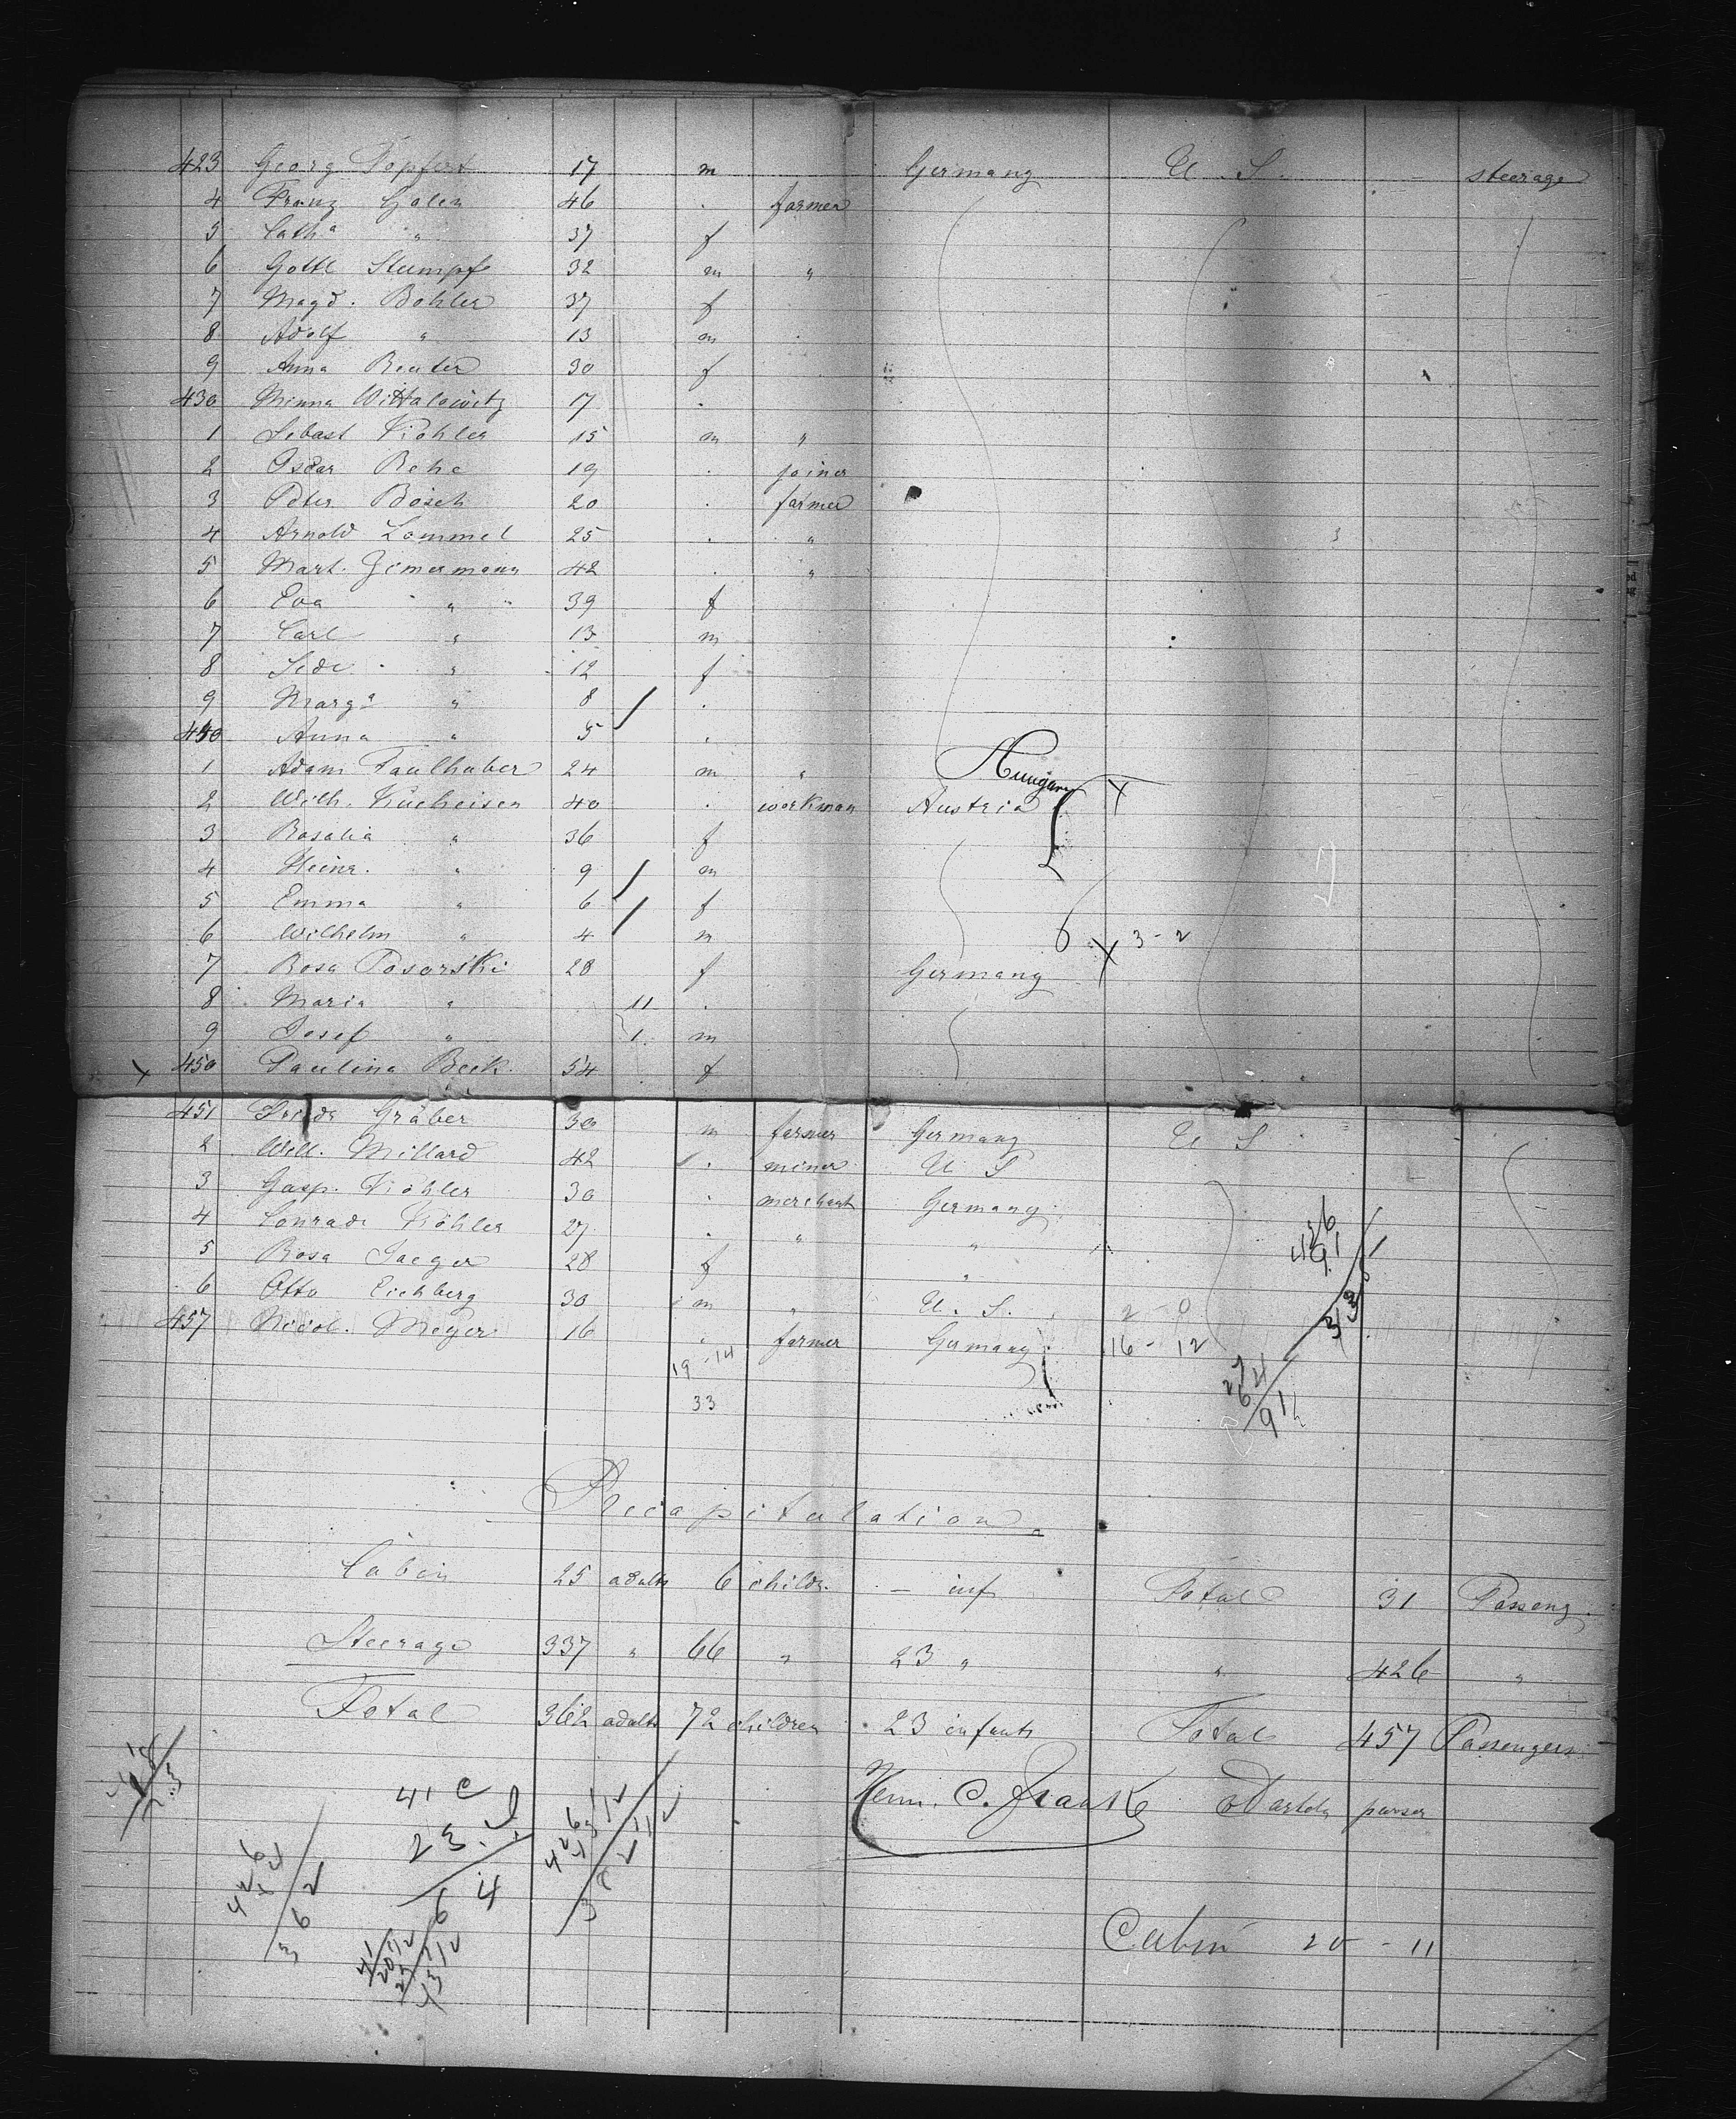 423 Georg Topfert 17 m Germany U. S. — steerage
4 Franz Golen 46 . farmer
5 Cath.a " 37 f
6 Gottl Stumpf 32 m "
7 Magd. Bohler 37 f
8 Adolf " 13 m
9 Anna Reuter 30 f
430 Minna Wittalowitz 17 .
1 Sebast Köhler 15 m "
2 Oscar Behe 19 . joiner
3 Peter Bosch 20 . farmer
4 Arnold Lommel 25 . "
5 Mart. Zimermann 42 . "
6 Eva " 39 f
7 Carl " 13 m
8 " 12 f
9 Marg.a " 8 .
440 Anna " 5 .
1 Adam Faulhaber 24 m " Hungary
2 Wilh. 40 . workman Austria
3 Rosalia " 36 f
4 Heinr. " 9 m
5 Emma " 6 f
6 Wilhelm " 4 m 6 X 3 - 2
7 Rosa Posorski 28 f Germany
8 Maria " 11 .
9 Josef " 1 m
X 450 Paulina Beck 54 f
451 Gräber 30 m farmer Germany U S
2 Will. Millard 42 . miner U S
3 Gasp. Köhler 30 . merchant Germany
4 Conrad Köhler 27 . " "
5 Rosa Jaeger 28 f "
6 Otto Eichberg 30 m " U. S. 2 - 0
457 Nicol. Meyer 16 . farmer Germany 16 - 12
19 - 14
33
Recapitulation
Cabin 25 adults 6 childr. — inf Total 31 Passeng.
Steerage 337 " 66 " 23 " " 426 "
Total 362 adults 72 children 23 infants Total 457 Passengers
41 C
23
64
Cabin 20 - 11